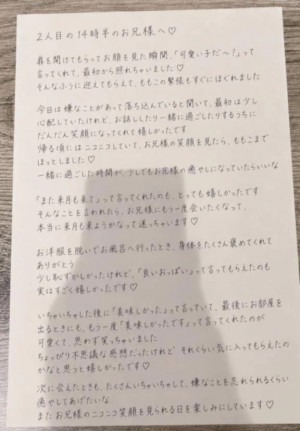 2人目の14時半のお兄様へ♡
扉を開けてもらってお顔を見た瞬間、「可愛い子だ〜！」って
言ってくれて、最初から照れちゃいました♡
そんなふうに迎えてもらえて、ももこの緊張もすぐにほぐれました
今日は嫌なことがあって落ち込んでいると聞いて、最初は少し
心配していたけれど、お話ししたり一緒に過ごしたりするうちに
だんだん笑顔になってくれて嬉しかったです
帰る頃にはニコニコしていて、お兄様の笑顔を見たら、ももこまで
ほっとしました♡
一緒に過ごした時間が、少しでもお兄様の癒やしになっていたらいいな
「また来月も来て」って言ってくれたのも、とっても嬉しかったです
そんなことを言われたら、お兄様にもう一度会いたくなって、
本当に来月も来ようかなって迷っちゃいます♡
お洋服を脱いでお風呂へ行ったとき、身体をたくさん褒めてくれて
ありがとう
少し恥ずかしかったけれど、「良いおっぱい」って言ってもらえたのも
実はすごく嬉しかったです♡
いちゃいちゃした後に「美味しかった」って言っていて、最後にお部屋を
出るときにも、もう一度「美味しかったです」って言ってくれたのが
可愛くて、思わず笑っちゃいました
ちょっぴり不思議な感想だったけれど それくらい気に入ってもらえたの
かなと思うと嬉しかったです♡
次に会えたときも、たくさんいちゃいちゃして、嫌なことを忘れられるくらい
癒やしてあげたいな
またお兄様のニコニコ笑顔を見られる日を楽しみにしています♡